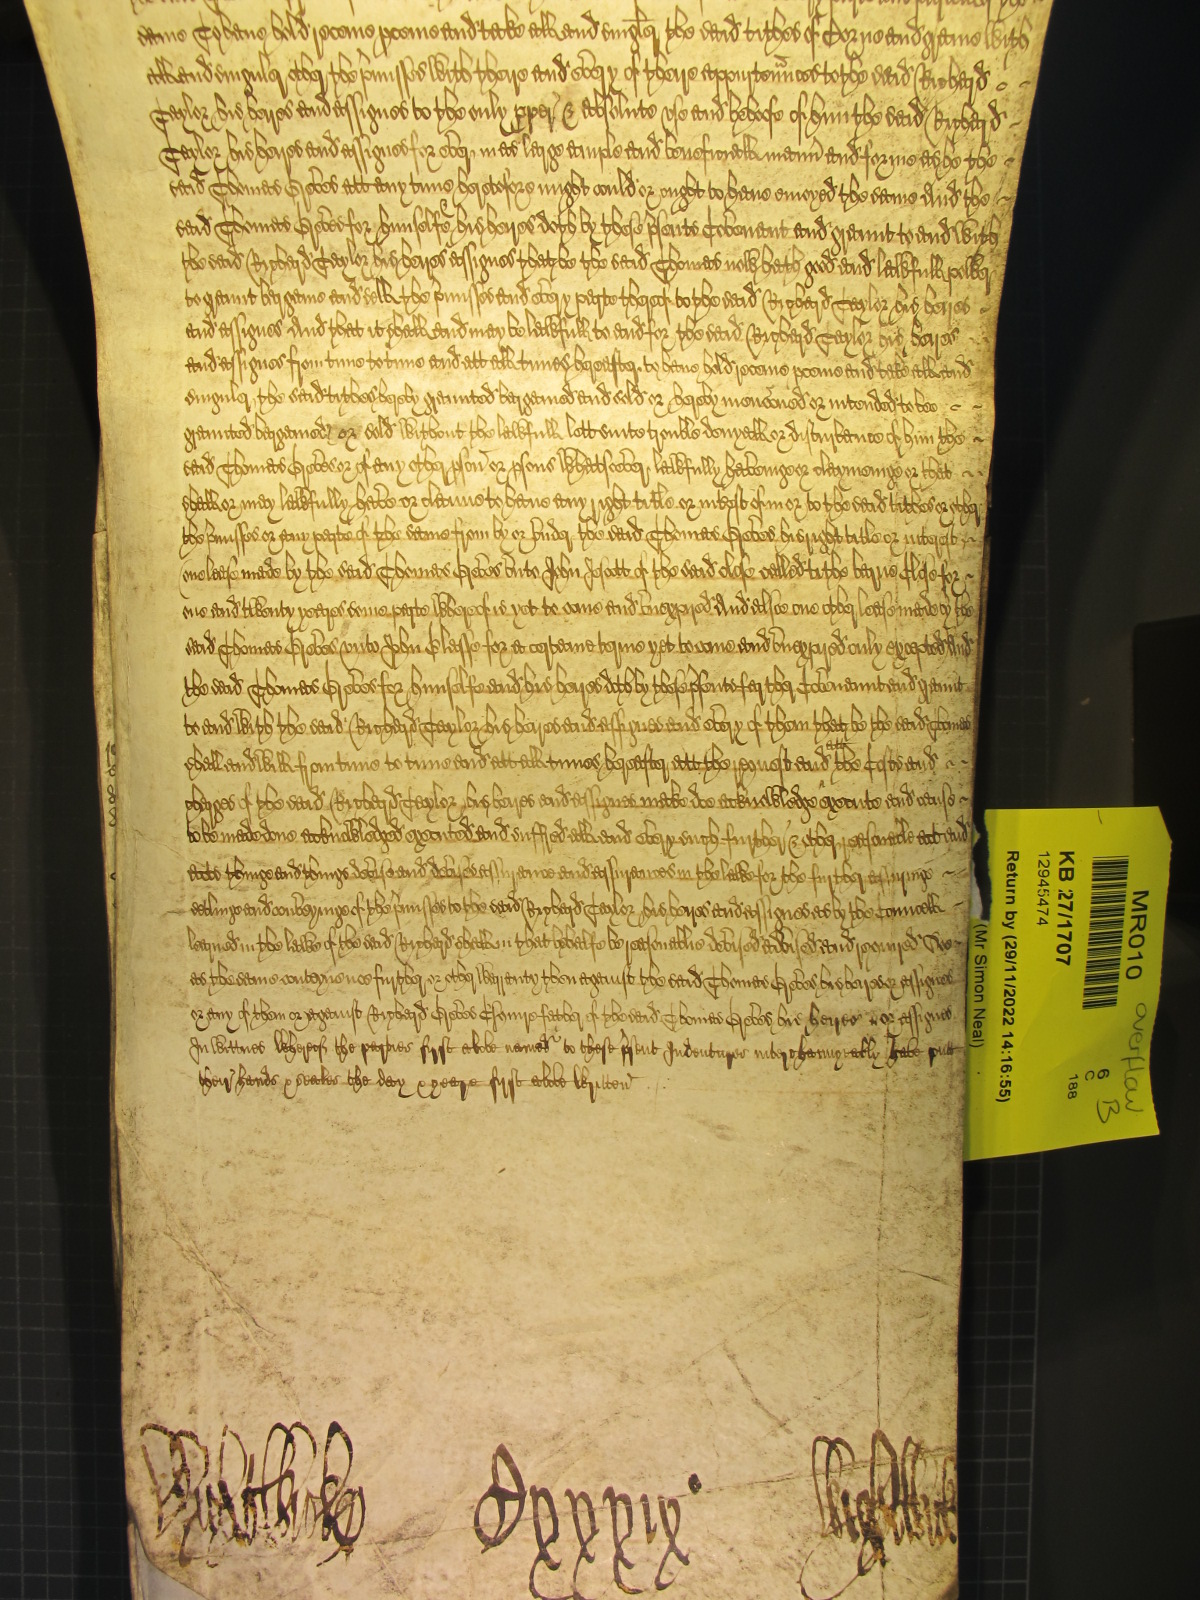 same To have hold receave pceave and take all and singler the said tithes of Corne and graine with
all and singuler other the pmisses with theire and every of theire appurtenncs to the said Richard
Taylor his heires and assignes to the only pper & absolute use and behoofe of him the said Richard
Taylor his heires and assignes for ever in as large ample and beneficiall mann and forme as he the
said Thomas at any time heretofore might could or ought to have enioyed the same And the
said Thomas for himselfe his heires doth by these psents Covenant and graunt to and with
the said Richard Taylor his heires assignes that he the said Thomas now hath good and lawfull power
to graunt bargaine and sell the pmisses and every parte thereof to the said Richard Taylor his heires
and assignes And that it shall and may be lawfull to and for the said Richard Taylor his heires
and assignes from time to time and att all times hereafter to have hold receave pceave and take all and
singuler the said tithes hereby graunted bargained and sold or hereby menconed or intended to bee
graunted bargained or sold without the lawfull lett suite trouble denyall or disturbance of him the
said Thomas or of any other pson or psons whatsoever lawfully haveinge or claymeinge or that
shall or may lawfully have or claime to have any right title or interest of in or to the said tithes or other
the pmisses or any parte of the same from by or under the said Thomas his right title or interest
one lease made by the said Thomas unto John of the said close called tithe barne Close for
one and twenty yeares some parte whereof is yet to come and unexpired And alsoe one other lease made by the
said Thomas unto John Glasse for a certaine terme yet to come and unexpired only excepted And
the said Thomas for himselfe and his heires doth by these psents further Covenannt and graunt
to and with the said Richard Taylor his heires and assignes and every of them that he the said Thomas
shall and will from time to time and att all times hereafter att the request and att the Costs and
charges of the said Richard Taylor his heires and assignes make doe acknowledge execute and cause
to be made done acknowledged executed and suffred all and every such further & other reasonable act and
acts thinge and things devise and devises assurance and assurances in the lawe for the further assuringe
and conveyinge of the pmisses to the said Richard Taylor his heires and assignes as by the Councell
learned in the lawe of the said Richard shall in that behalfe be reasonablie devised advised and required Soe
as the same conteyne noe further or other warranty then against the said Thomas his heires or assignes
or any of them or against Richard Esquire father of the said Thomas his heires or assignes
In wittnes whereof the parties first above named to these psent Indentures interchangeably have putt
their hands & seales the day & yeare first above written
Dxxxix
MR010
overflow
KB 27/1707
12945474
6
C
B
188
Return by (29/11/2022 14:16:55)
(Mr Simon Neal)